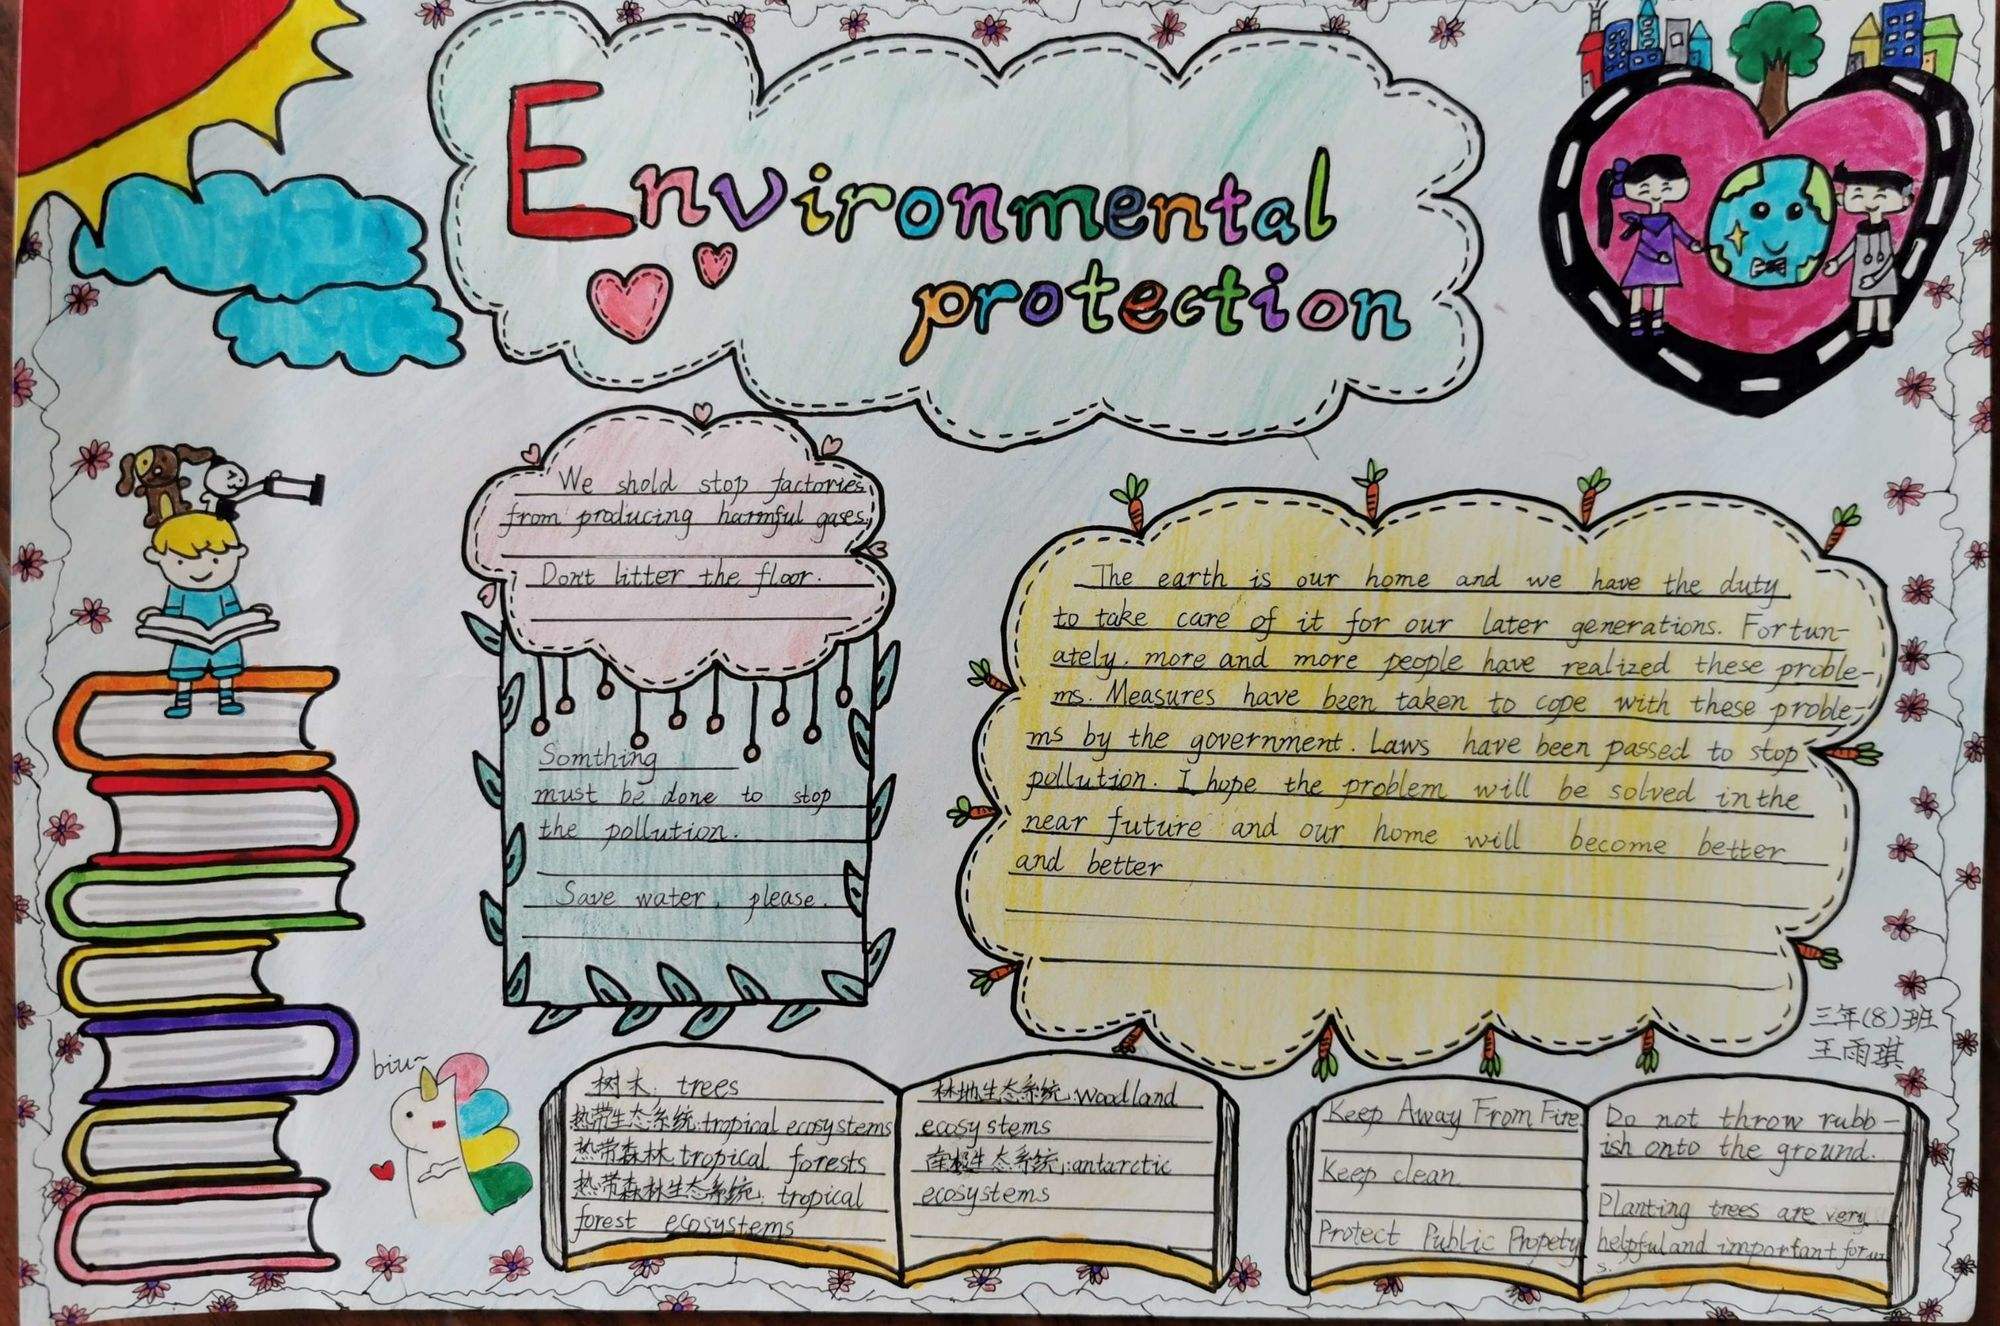 Environmental
protection
We shold stop factories
from producing harmful gases.
Don't litter the floor.
Somthing
must be done to stop
the pollution.
Save water, please.
The earth is our home and we have the duty
to take care of it for our later generations. Fortun-
ately. more and more people have realized these proble-
ms. Measures have been taken to cope with these proble-
ms by the government. Laws have been passed to stop
pollution. I hope the problem will be solved in the
near future and our home will become better
and better
三年(8)班
王雨琪
biu~
树木: trees
热带生态系统:tropical ecosystems
热带森林 tropical forests
热带森林生态系统: tropical
forest ecosystems
林地生态系统:woodland
ecosystems
南极生态系统:antarctic
ecosystems
Keep Away From Fire
Keep clean
Protect Public Propety
Do not throw rubb-
ish onto the ground.
Planting trees are very
helpful and important for u
s.